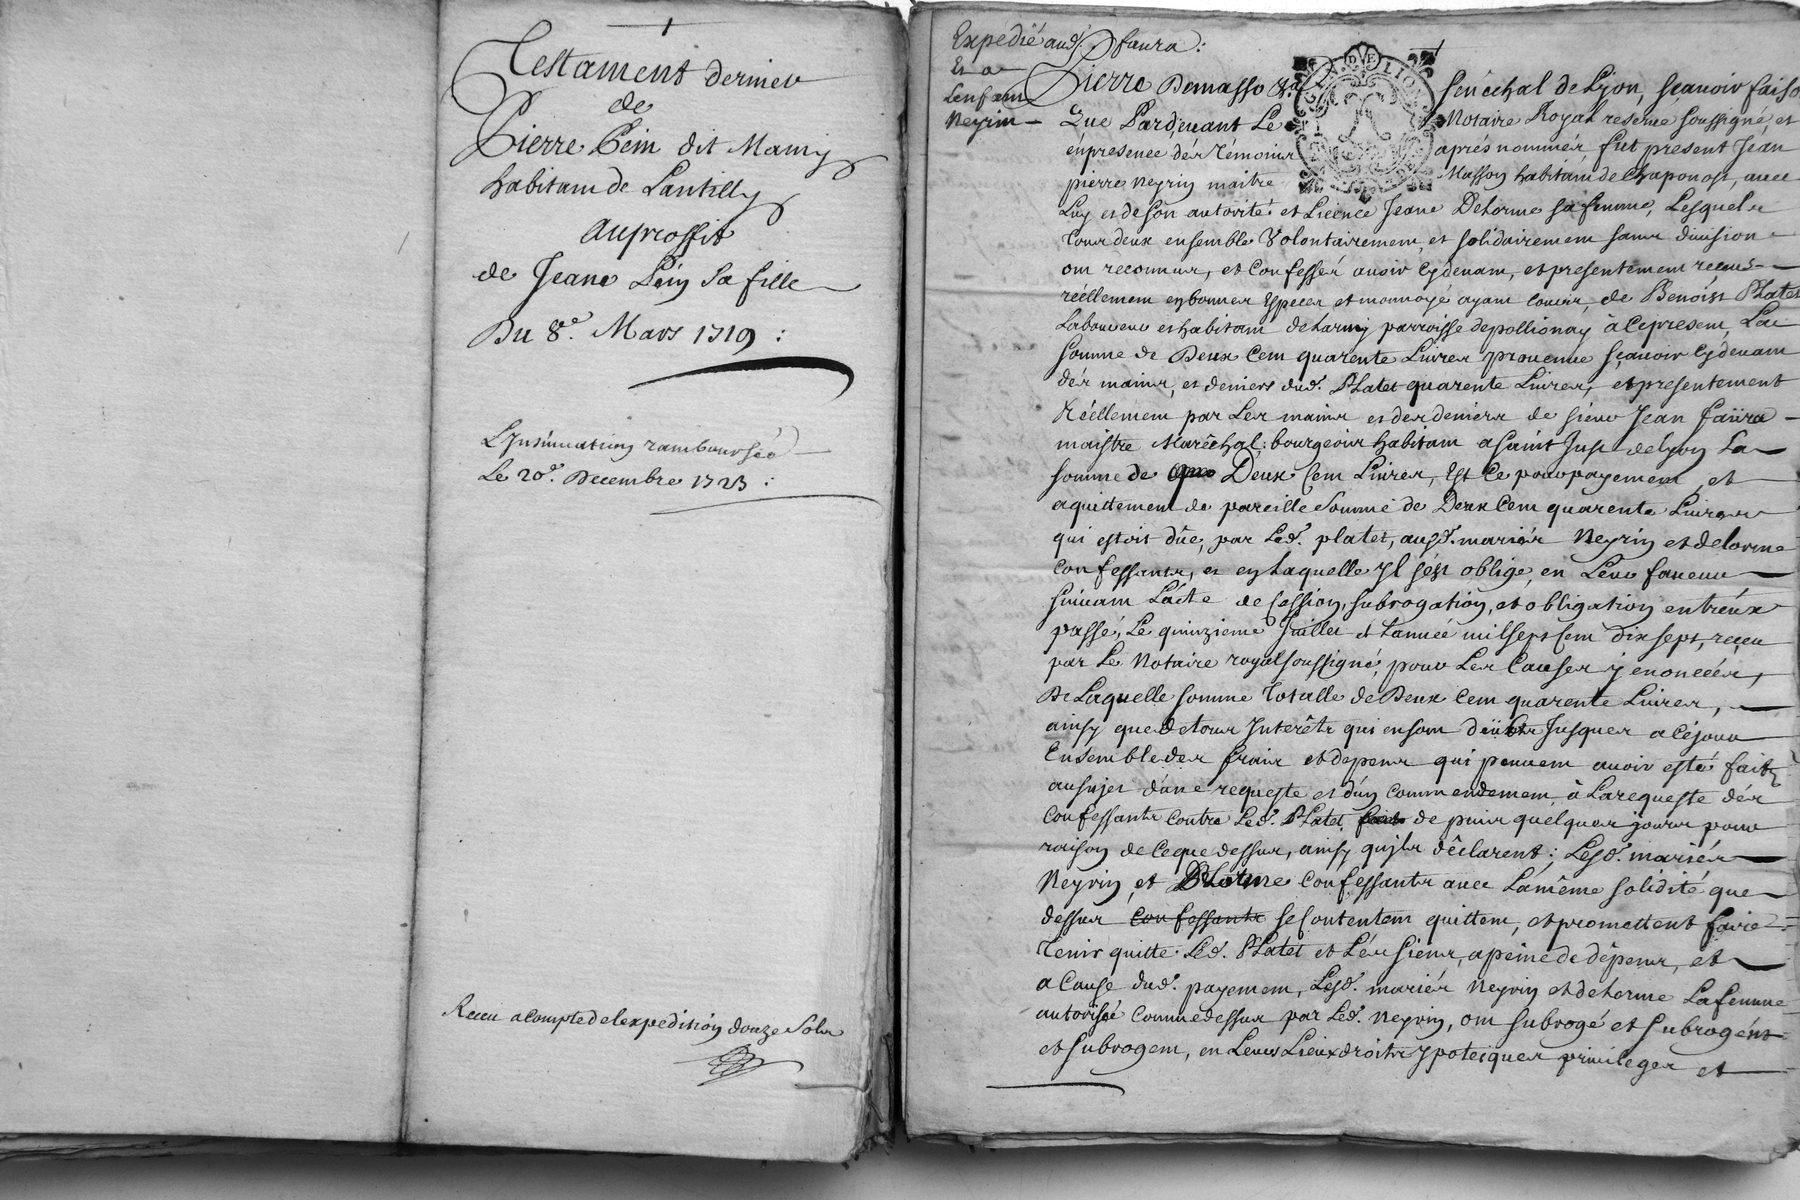 Testament dernier
de
Pierre Pein dit Mamy
habitant de Lantilly
auproffit
de Jeane Pein Sa fille
Du 8e. Mars 1719 :
L'Insinuation rambourséé
Le 20e. Decembre 1723 :
Receu a compte de lexpedition douze Sols
Expédié aud. Sr faura :
Et a
Neyrin
Pierre Demasso &a Sénéchal de Lyon, sçavoir faiso
Que Pardevant Le Notaire Royal reservé soussigné, et
én presence dés témoins aprés nommés fut present Jean
pierre neyrin maitre Masson habitant de Chaponost, avec
Luy et de son autorité et Licence Jeane Delorme sa femme, Lesquels
tous deux ensemble Volontairement et solidairement sans division
ont reconnus, et Confessé avoir cydevant, et presentement receus
réellement en bonnes Especes et monnoye ayant cours, de Benoist Platet
Laboureur et habitant de Larny parroisse de pollionay à ce present, La
somme de Deux Cent quarente Livres provenue sçavoir cydevant
dés mains, et deniers dud. Platet quarente Livres, et presentement
Réellement par Les mains et des deniers de sieur Jean faüra
maistre Maréchal, bourgeois habitant a saint Just de lyon La
somme de Deux Cent Livres, Est ce pour payement, et
aquittement de pareille somme de Deux Cent quarente Livres
qui estoit dûe, par Led. platet, ausd. mariés Neyrin et delorme
Confessants, et en Laquelle Il s'ést obligé, en Leur faveur
suivant L'acte de Cession, subrogation, et obligation entr'eux
passé, Le quinzieme Juillet et L'année mil sept Cent dix sept, receu
par Le Notaire royal soussigné, pour Les Causes y enoncéés,
De Laquelle somme Totalle de Deux Cent quarente Livres,
ainsy que de tous Interêts qui en sont dûbs Jusques a ce jour
Ensemble des frais et depens qui peuvent avoir esté faits
au sujet d'une requeste et d'un commendement, à La requeste dés
Confessants Contre Led. Platet de puis quelques jours pour
raison de Ce que dessus, ainsy qu'ils déclarent ; Lesd. mariés
Neyrin, et Delorme Confessants avec La même solidité que
dessus Confessants se Contentent quittent, et promettent faire
Tenir quitte Led. Platet et Lés siens, a peine de dépens, et
a Cause dud. payement, Lesd. mariés Neyrin et delorme La femme
autorisée Comme dessus par Led. Neyrin, ont subrogé et subrogent
et subrogent, en Leurs Lieux droits ypoteques privileges et